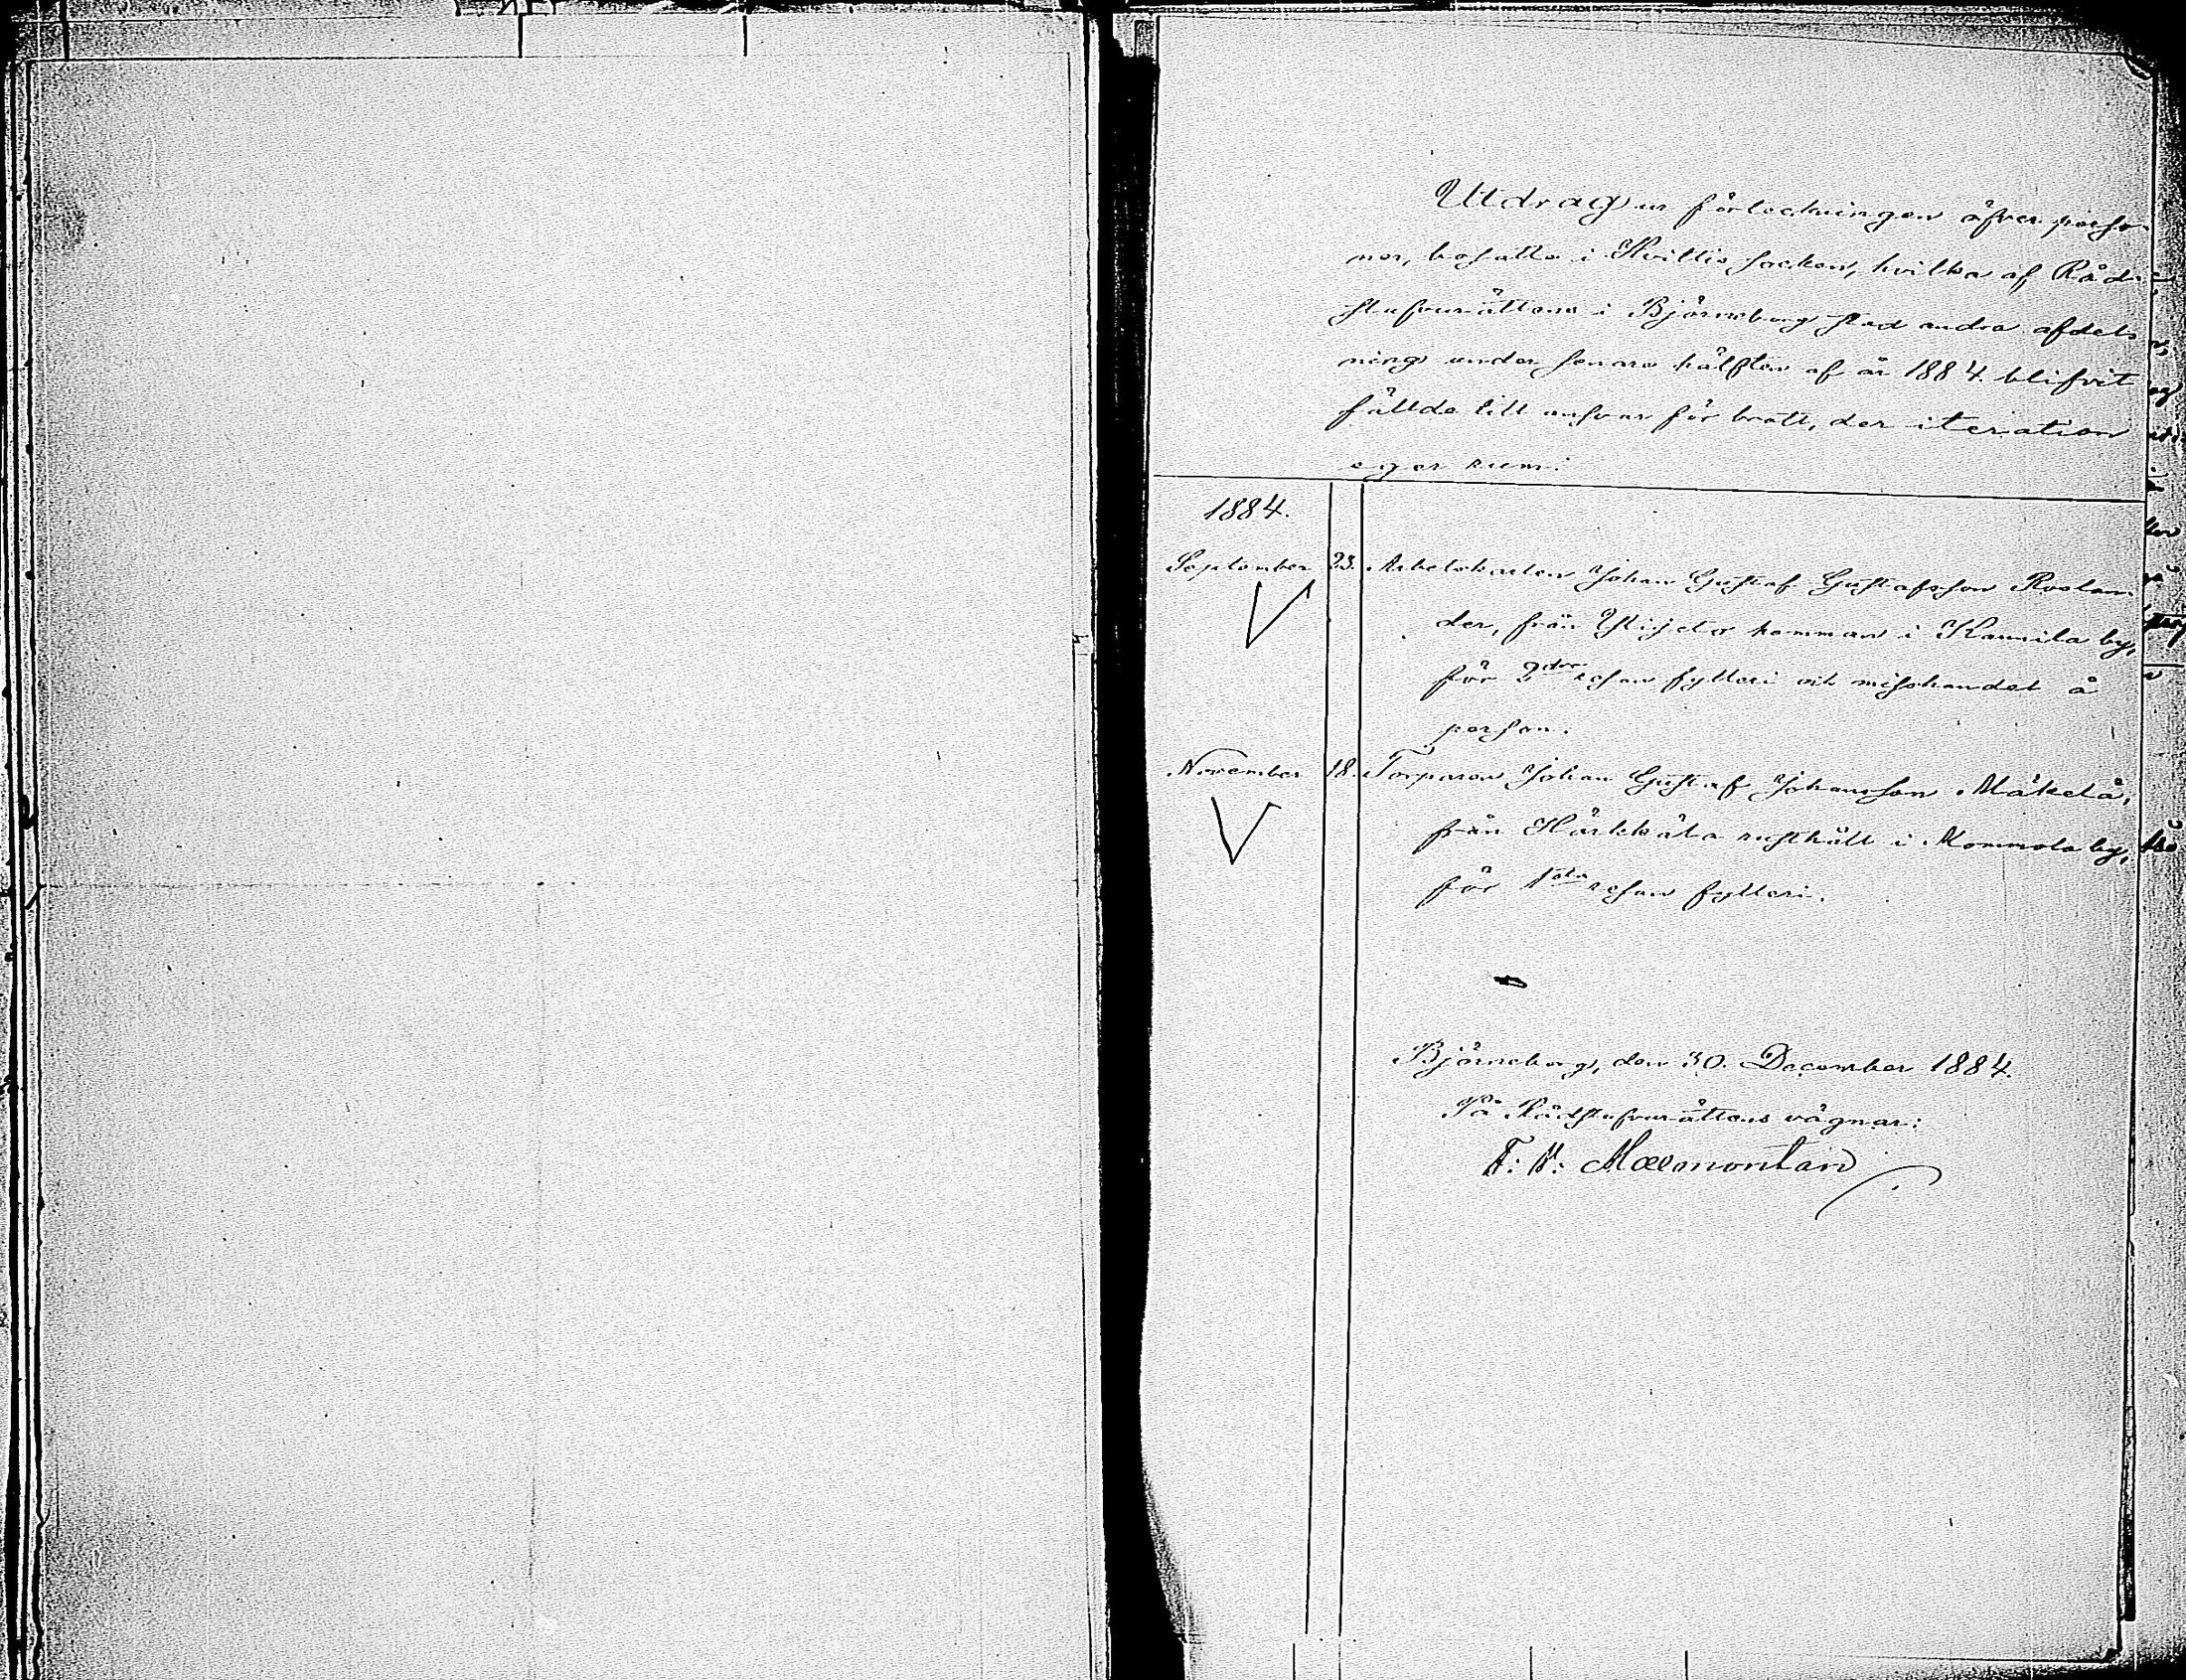 Utdrag ur förteckningen öfver perso-
ner, bosatta i Hvittis socken, hvilka af Råd-
stufvurättens i Björneborg stad andra afdel-
ning under senare hälften af år 1884 blifvit
fällde till ansvar för brott, der iteration
eger rum:
1884.
September 23. Arbetskarlen Johan Gustaf Gustafsson Roslan-
der, från Ylijeto hemman i Kaurila by,
för 2dra resan fylleri och misshandel å
person.
November 18. Torparen Johan Gustaf Johansson Mäkelä,
från rusthåll i Mommola by,
för 1sta resan fylleri.
Björneborg, den 30. December 1884.
På Rådstufvurättens vägnar:
Malmontan